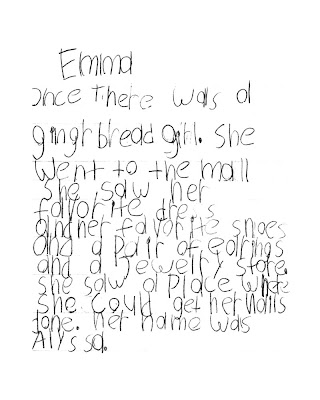 Emma
Once There was a
gingrbread girl. She
went to the mall
She saw her
favorite dress
and her favorite shoes
and a Pair of earrings
and a Jewelry store.
She saw a Place where
She Could get her nails
tone. Her name was
Alyssa.